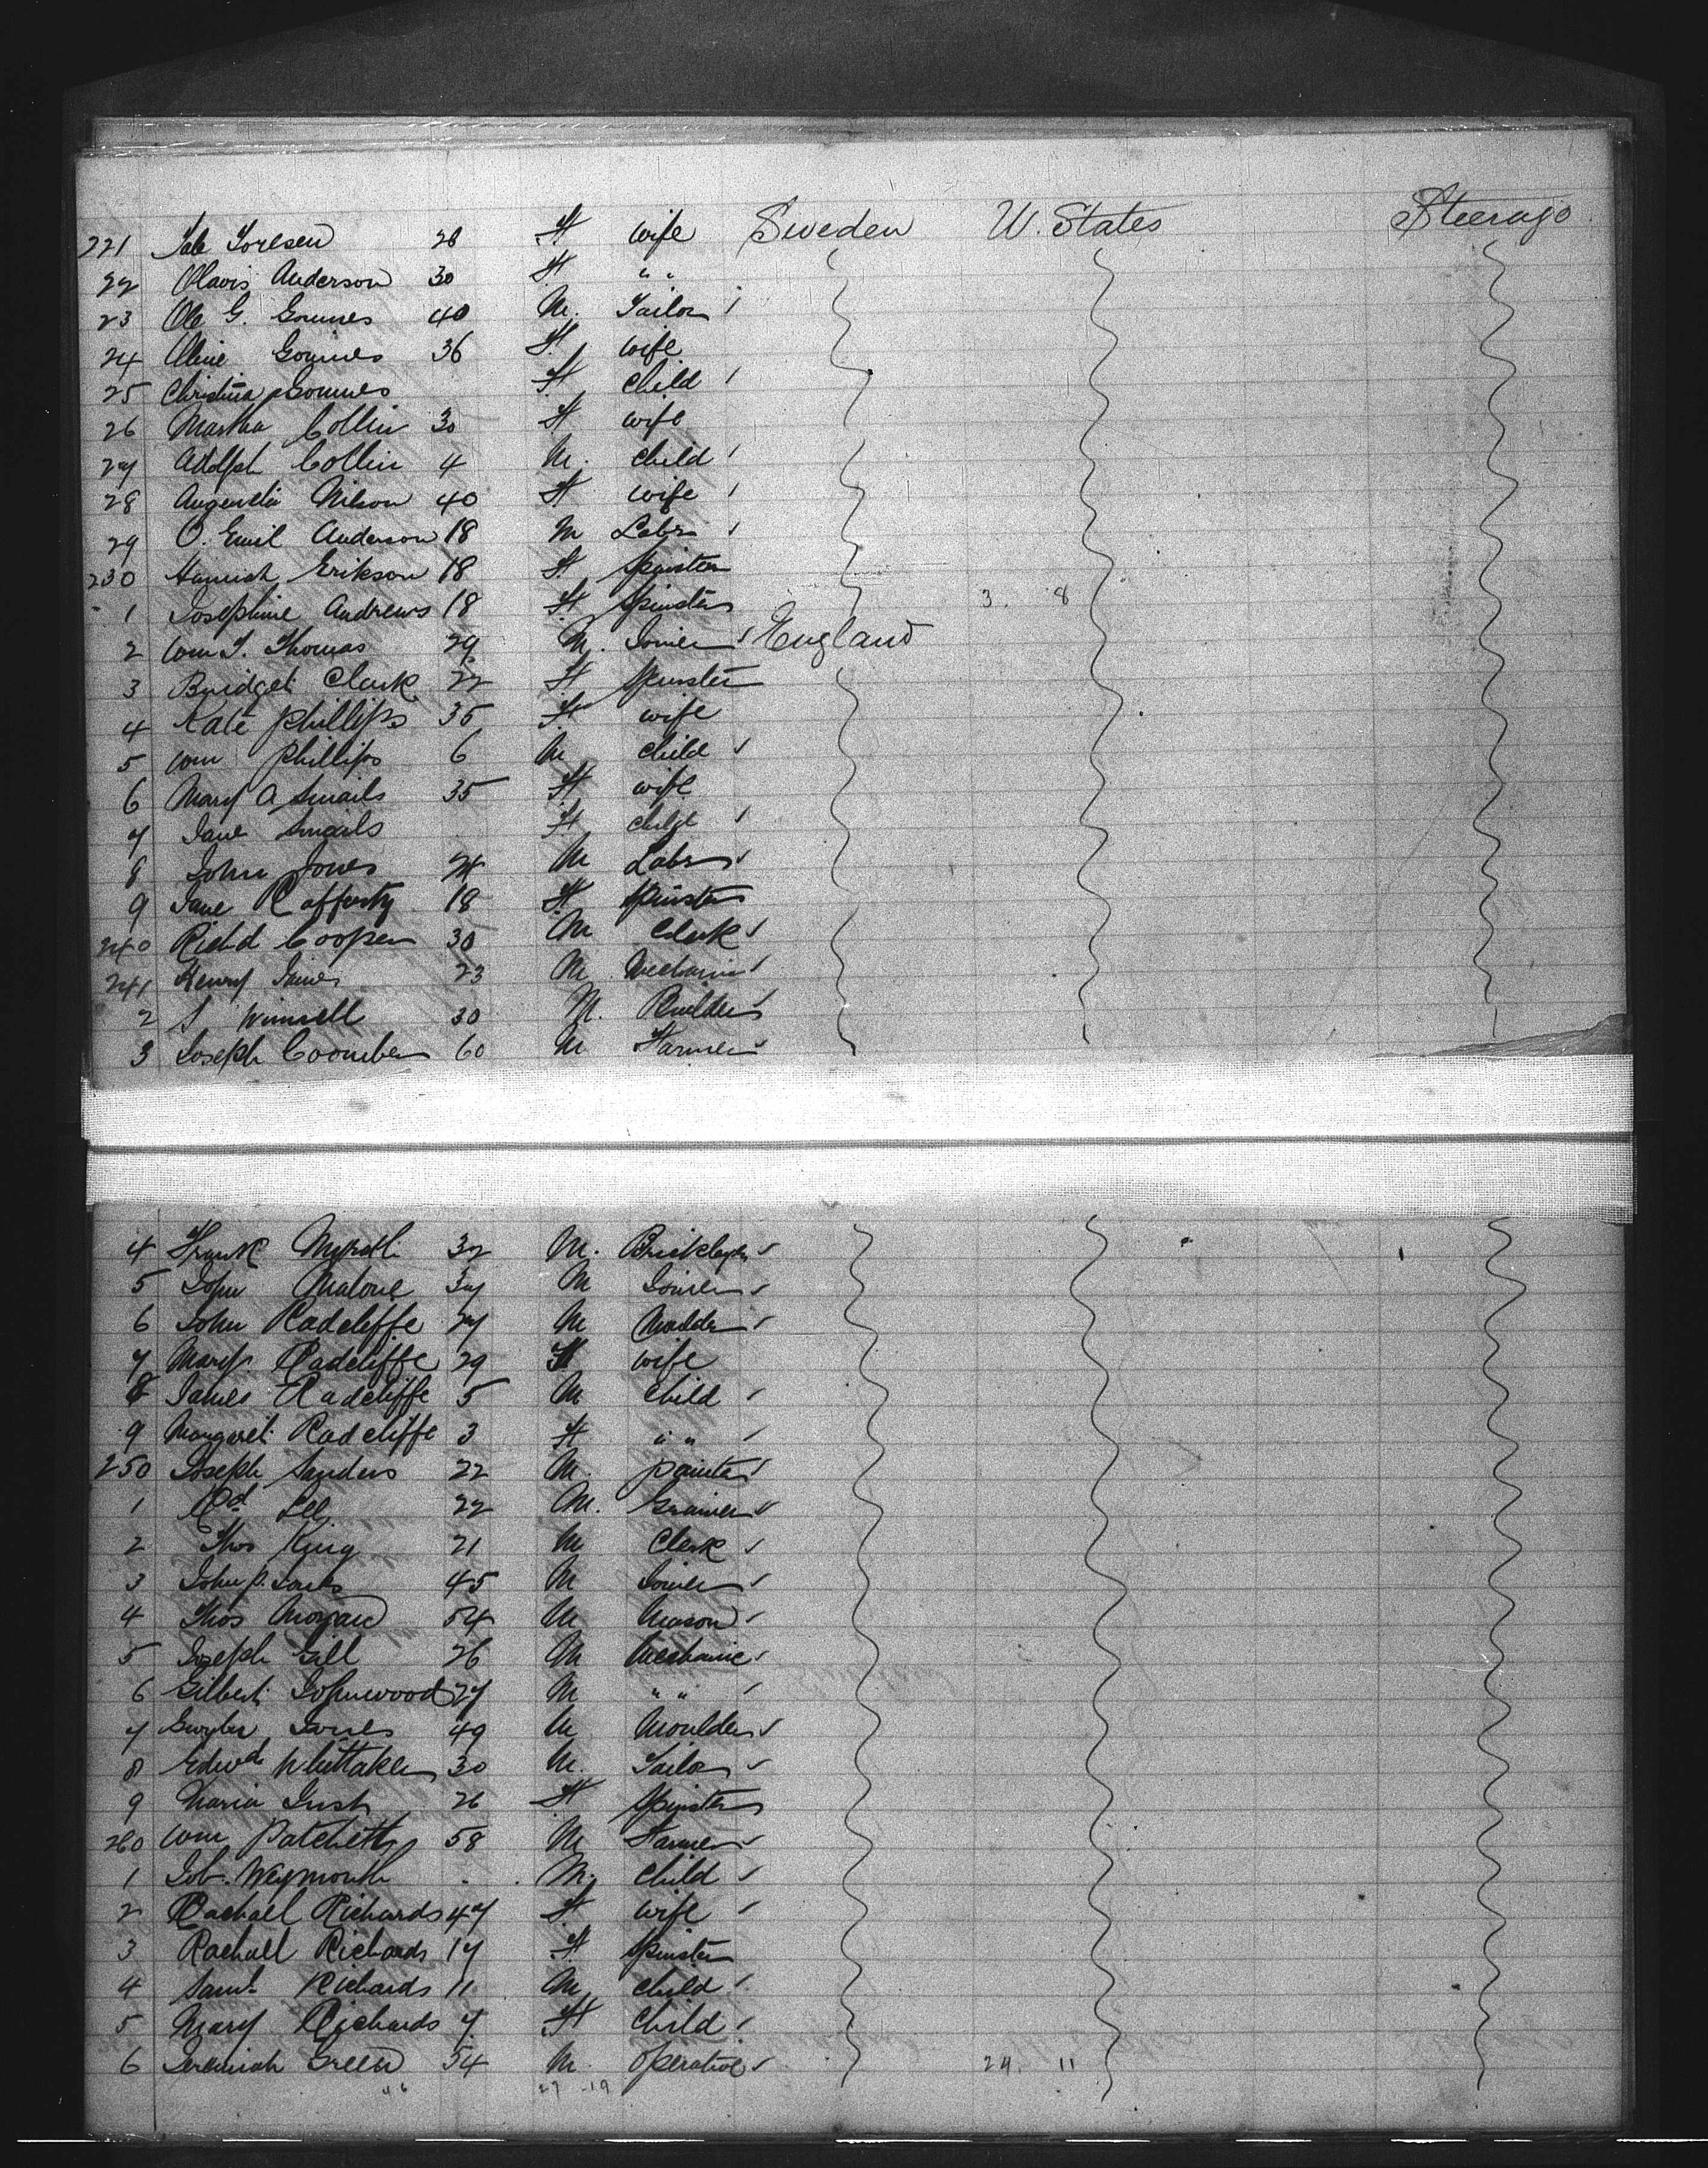 221 Torlsen 28 F wife Sweden U. States Steerage
22 Olavis Anderson 30 F " "
23 Ole G. Gommes 40 M. Tailor
24 Oline Gommes 36 F wife
25 Christina Gommes F child
26 Martha Collin 30 F wife
27 Adolph Collin 4 M. child
28 Nilson 40 F wife
29 O. Emil Anderson 18 M Labr
230 Hannah Erikson 18 F Spinster
1 Josephine Andrews 18 F Spinster 3. 8
2 Wm T. Thomas 29 M. Joiner England
3 Bridget Clark 22 F Spinster
4 Kate Phillips 35 F wife
5 Wm Phillips 6 M child
6 Mary A Smails 35 F wife
7 Jane Smails F child
8 John Jones 24 M Labr
9 Jane Rafferty 18 F Spinster
240 Richd Cooper 30 M Clerk
241 Henry 23 M Mechanic
2 S 30 M. Builder
3 Joseph Coomber 60 M Farmer
4 Frank 32 M. Bricklayer
5 John Malone 37 M Joiner
6 John Radcliffe 27 M
7 Mary Radcliffe 29 F wife
8 James Radcliffe 5 M child
9 Margaret Radcliffe 3 F " "
250 Joseph Sanders 22 M. painter
1 Rd Lee 22 M. Grainer
2 Thos King 21 M Clerk
3 John P. Jones 45 M Joiner
4 Thos Morgan 54 M Mason
5 Joseph Gill 26 M Mechanic
6 Gilbert Johnwood 27 M " "
7 Jones 49 M Moulder
8 Edwd Whittaker 30 M. Tailor
9 Maria 26 F Spinster
260 Wm Patchett 58 M Farmer
1 Job. Weymouth M. child
2 Rachael Richards 47 F wife
3 Rachall Richards 17 F Spinster
4 Saml Richards 11 M child
5 Mary Richards 7 F Child
6 Jeremiah Green 54 M. Operative 24. 11
46 27 -19